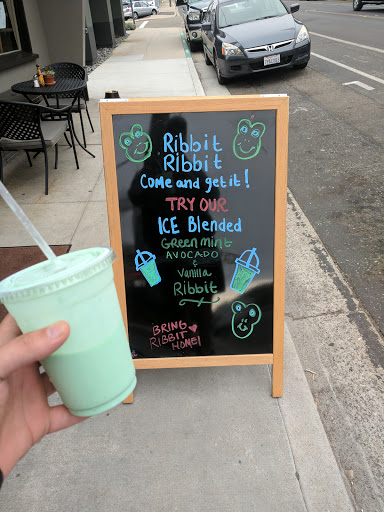 Ribbit
Ribbit
Come and get it!
TRY OUR
ICE Blended
Green mint
AVOCADO
&
Vanilla
Ribbit
BRING
RIBBIT
HOME!